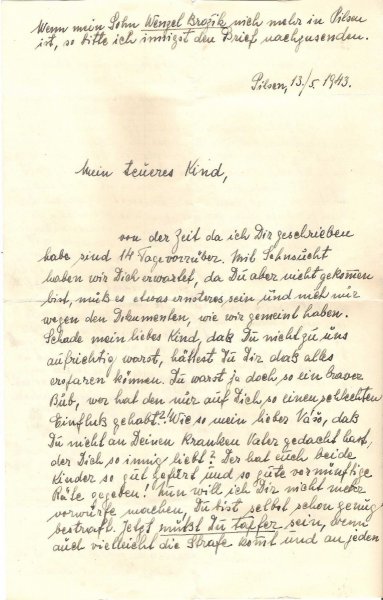 Wenn mein Sohn Wenzel Brožik nich mehr in Pilsen
ist, so bitte ich innigst den Brief nachzusenden.
Pilsen, 13./5. 1943.
Mein teueres Kind,
von der Zeit da ich Dir geschrieben
habe sind 14 Tage vorrüber. Mit Sehnsucht
haben wir Dich erwartet, da Du aber nicht gekommen
bist, muß es etwas ernsteres sein und nich nur
wegen den Dokumenten, wie wir gemeint haben.
Schade mein liebes Kind, daß Du nicht zu uns
aufrichtig warst, hättest Du Dir daß alles
ersparen können. Du warst ja doch so ein braver
Bub, wer hat den nur auf Dich so einen schlechten
Einfluß gehabt?! Wie so mein lieber Vašo, daß
Du nicht an Deinen Kranken Vater gedacht hast,
der Dich so innig liebt? Der hat euch beide
Kinder so gut geführt und so gute vernünftige
Räte gegeben! Nun will ich Dir nicht mehr
vorwürfe machen, Du bist selbst schon genug
bestraft. Jetzt mußt Du tapfer sein, wenn
auch vielleicht die Strafe komt und an jeden